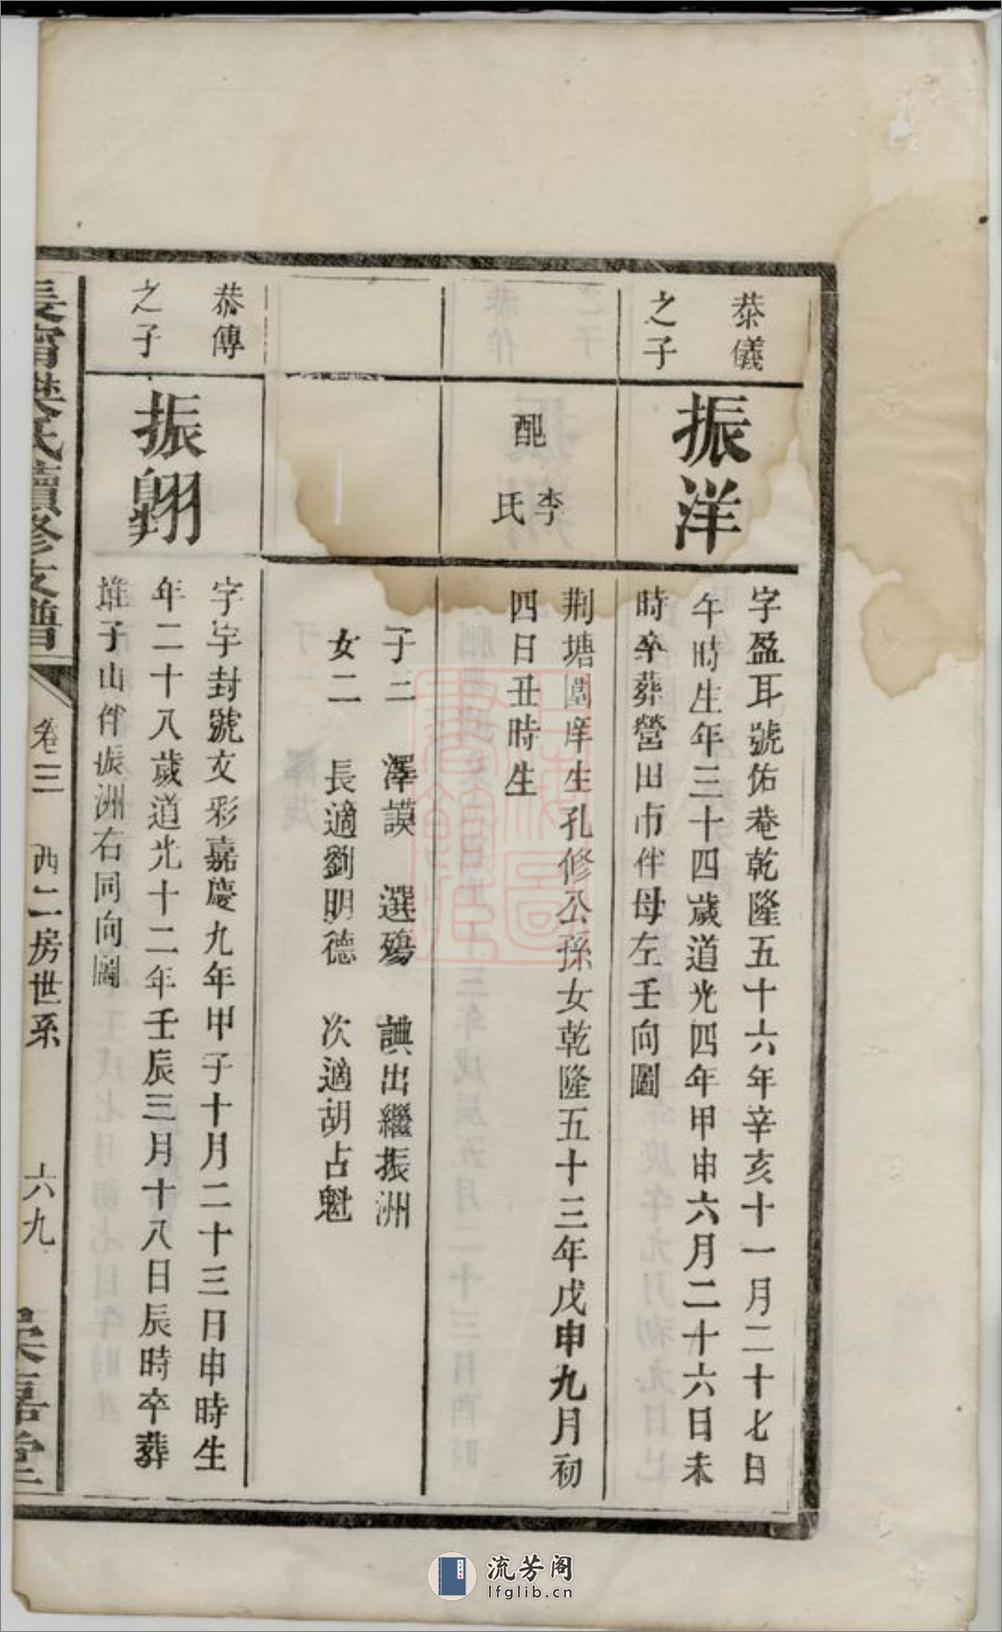 恭儀
之子
振洋
字盈耳號佑菴乾隆五十六年辛亥十一月二十七日
午時生年三十四歲道光四年甲申六月二十六日未
時卒葬營田市伴母左壬向圖
配李氏
荆塘圍庠生孔修公孫女乾隆五十三年戊申九月初
四日丑時生
子三 澤謨 選殤 㙉出繼振洲
女二 長適劉明德 次適胡占魁
恭傳
之子
振翺
字宇封號文彩嘉慶九年甲子十月二十三日申時生
年二十八歲道光十二年壬辰三月十八日辰時卒葬
堆子山伴振洲右同向圖
氏續修支譜 卷三 西二房世系 六九
流芳阁
lfglib.cn